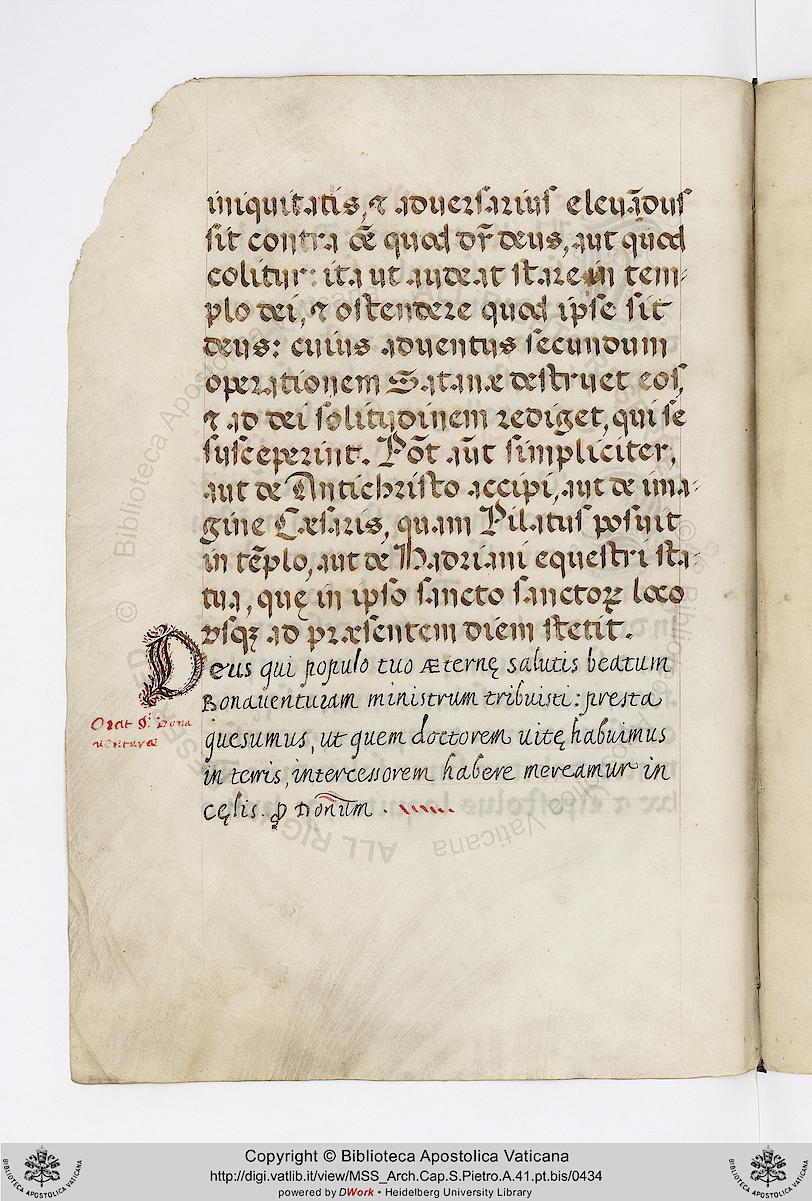 iniquitatis, & aduersarius eleuãdus
sit contra õe quod dr̃ deus, aut quod
colitur: ita ut audeat stare in tem-
plo dei, & ostendere quod ipse sit
deus: cuius aduentus secundum
operationem Satanæ destruet eos,
& ad dei solitudinem rediget, qui se
susceperint. Põt aũt simpliciter,
aut de Antichristo accipi, aut de ima-
gine Cæsaris, quam Pilatus posuit
in tẽplo, aut de Hadriani equestri sta-
tua, quę in ipso sancto sanctoꝝ loco
vsqꝫ ad præsentem diem stetit.
Deus qui populo tuo æternę salutis beatum
Bonauenturam ministrum tribuisti: presta
quesumus, ut quem doctorem uitę habuimus
in terris, intercessorem habere mereamur in
cęlis. ꝑ Donũm.
Orat S. Bona
uenturæ
Copyright © Biblioteca Apostolica Vaticana
http://digi.vatlib.it/view/MSS_Arch.Cap.S.Pietro.A.41.pt.bis/0434
powered by DWork • Heidelberg University Library